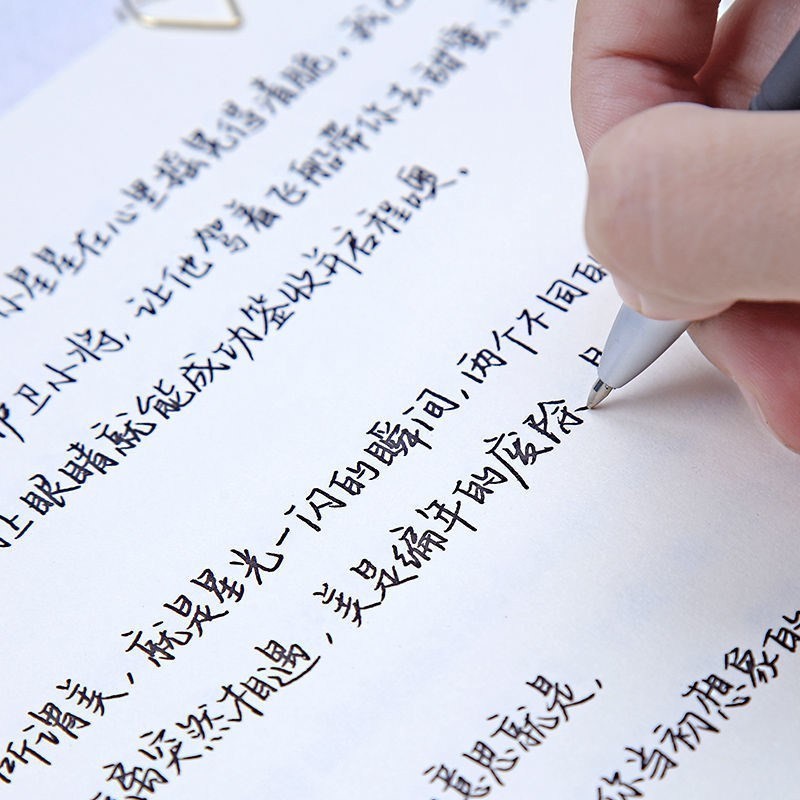 小星星在心里撞见得清脆。我
护卫小将，让他驾着飞船带你去甜蜜，
上眼睛就能成功签收并启程噢。
所谓美，就是星光一闪的瞬间，两个不同的
突然相遇，美是编年的废除
意思就是，
你当初想象的